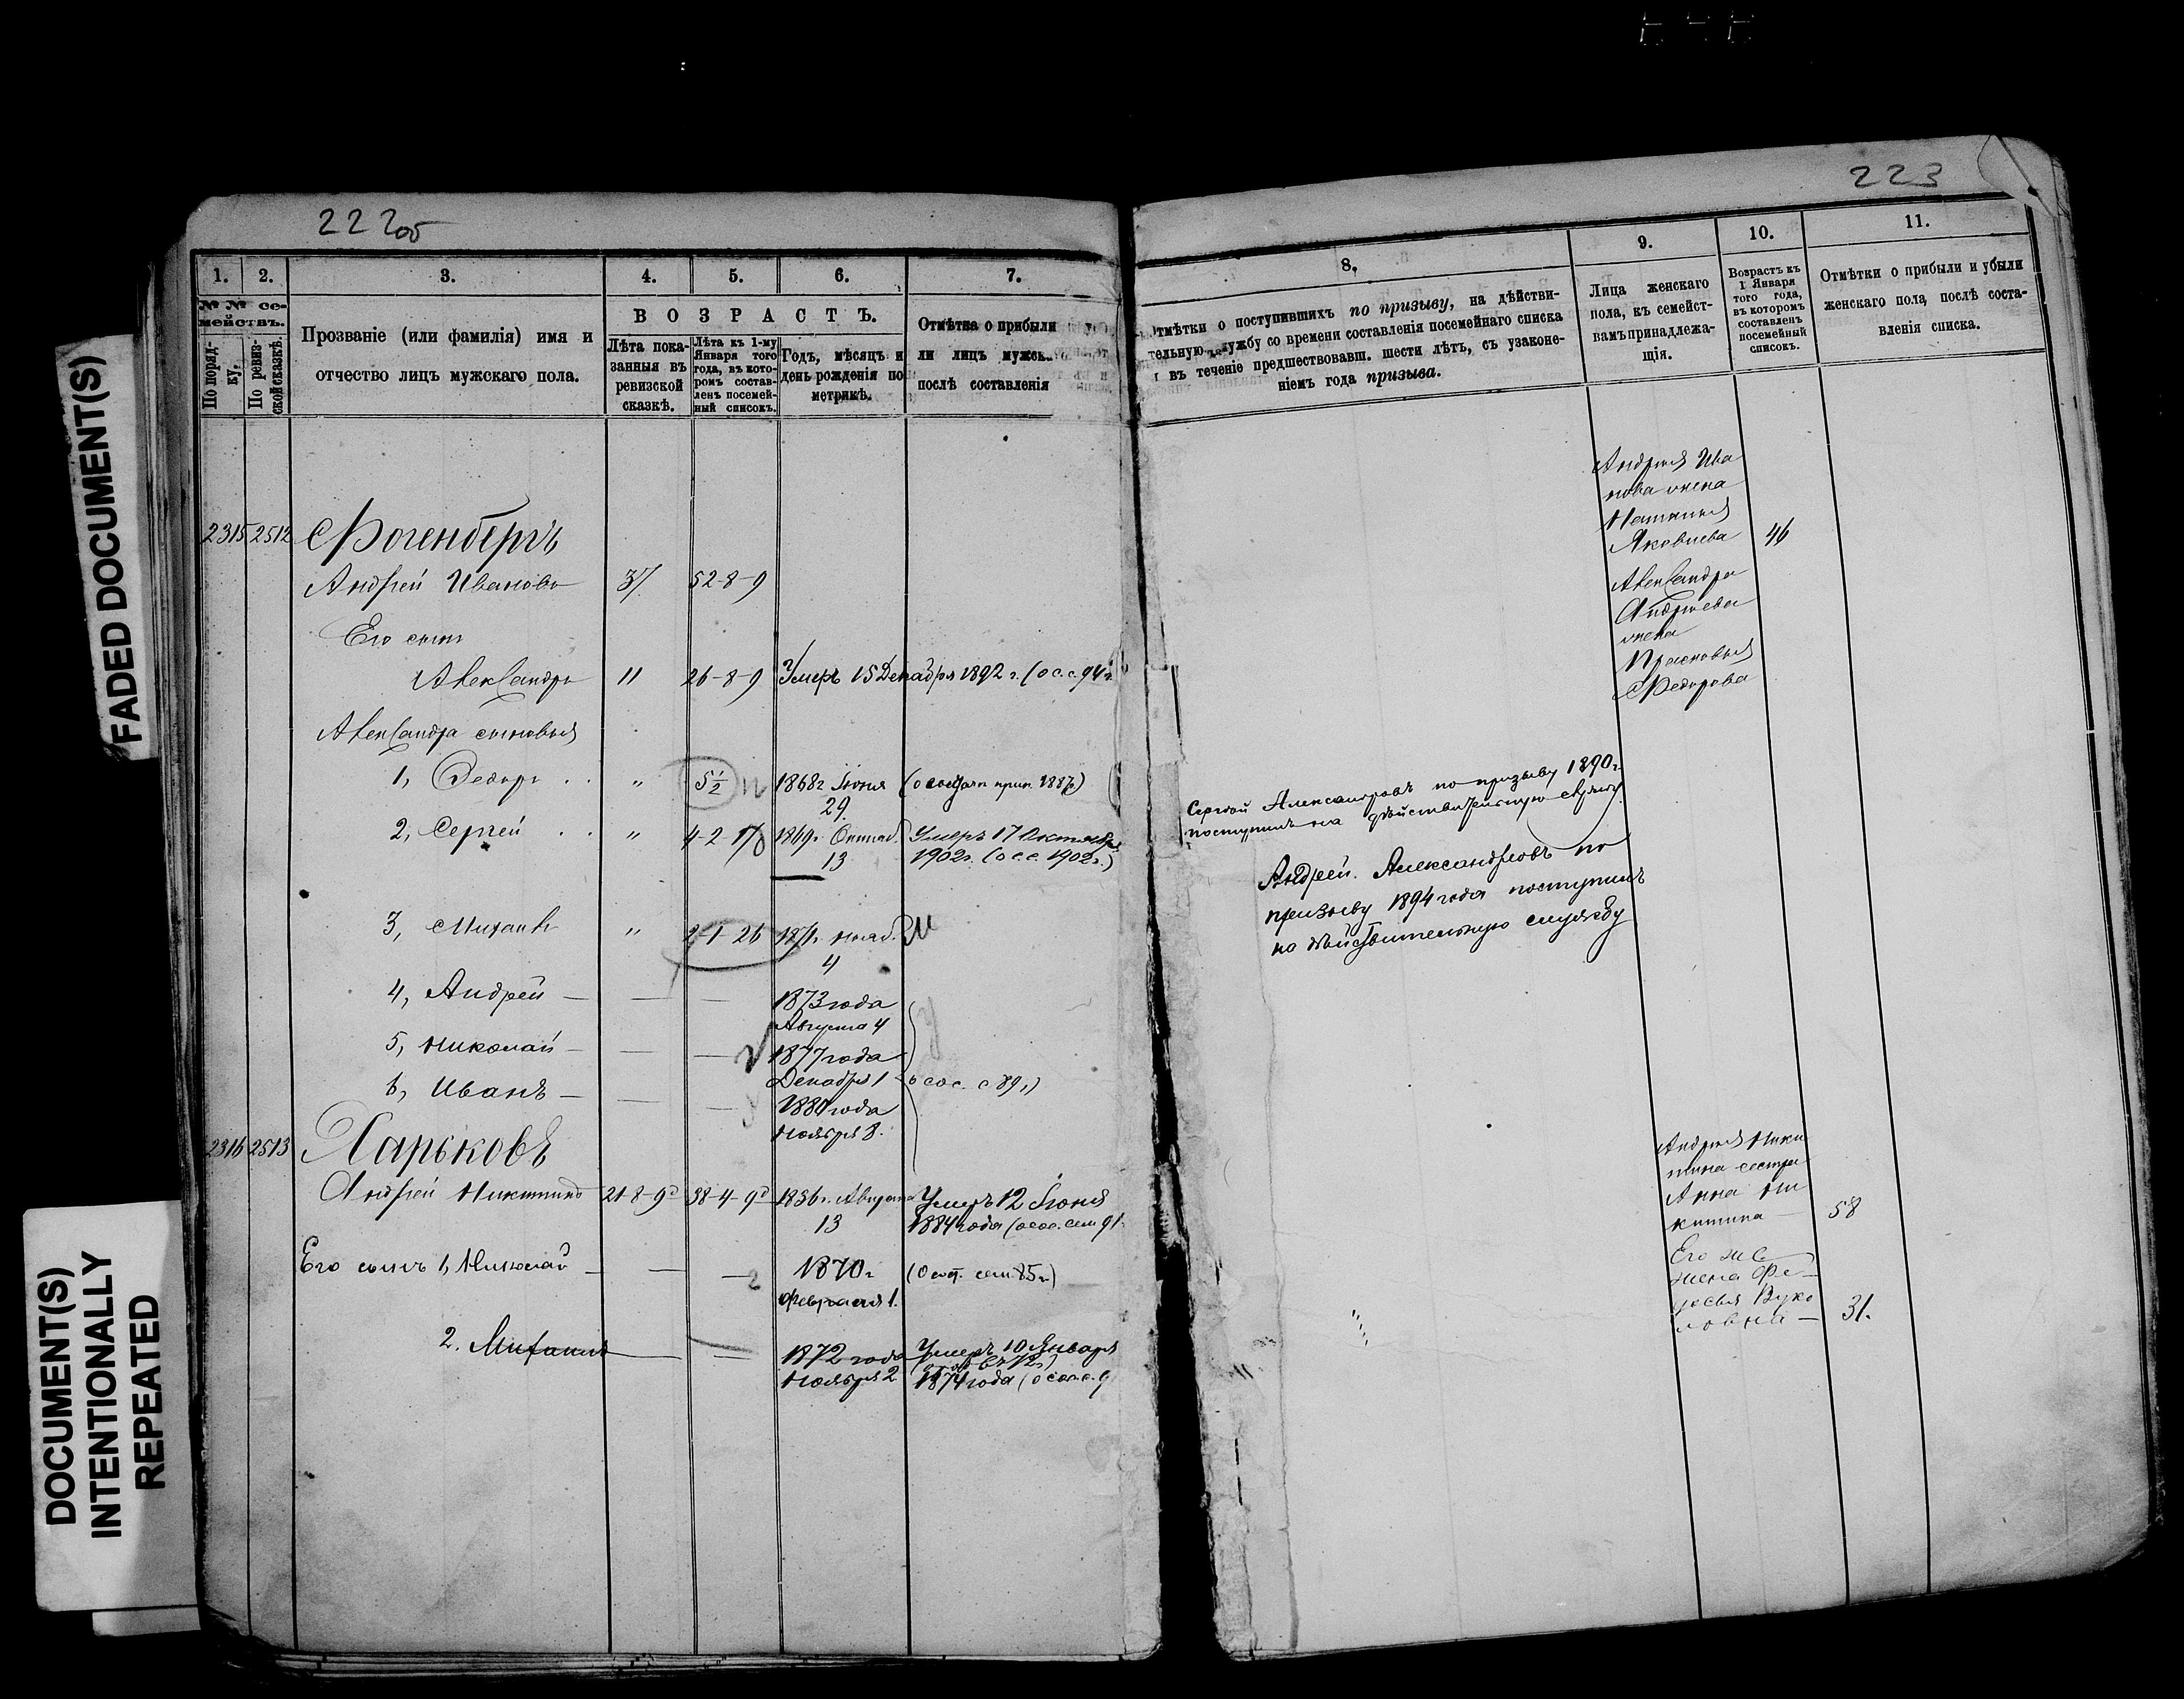 222об
223
FADED DOCUMENT(S)
DOCUMENT(S)
INTENTIONALLY
REPEATED
1.
2.
3.
4.
5.
6.
7.
№ № се-
мействъ.
По поряд-
ку.
По ревиз-
ской сказкѣ.
Прозваніе (или фамилія) имя и
отчество лицъ мужскаго пола.
ВОЗРАСТЪ.
Лѣта пока-
занныя въ
ревизской
сказкѣ.
Лѣта къ 1-му
Января того
года, въ кото-
ромъ состав-
ленъ посемей-
ный списокъ.
Годъ, мѣсяцъ и
день рожденія по
метрикѣ.
Отмѣтка о прибыли
ли лицъ мужск
послѣ составленія
2315 2512 Фогенбергъ
Андрей Ивановъ 37 52-8-9
Его сынъ
Александръ 11 26-8-9 Умеръ 15 Декабря 1892 г. (о с. с. 94 г.
Александра сыновья
1, Федоръ " 5½ 1868 г Іюня
29
2, Сергей " 4-2-17 1869 г. Октяб. Умеръ 17 Октября
13 1902 г. (о с. с. 1902 г.)
3, Михаилъ " 2-1-26 1871 г. нояб.
4
4, Андрей — — — 1873 года
Августа 4
5, Николай — — — 1877 года
Декабря 1 (о сос. с 89,)
6, Иванъ — — — 1880 года
Ноября 8.
2316 2513 Харьковъ
Андрей Никитинъ 21-8-9 38-4-9 1836 г. Августа Умеръ 12 Іюня
13 1884 года
Его сынъ 1, Николай — — — 1870 г
Февраля 1.
2. Михаилъ — — 1872 года Умеръ 10 Января
Ноября 2 1874 года
8.
9.
10.
11.
Отмѣтки о поступившихъ по призыву, на дѣйстви-
тельную службу со времени составленія посемейнаго списка
въ теченіе предшествовавш. шести лѣтъ, съ узаконе-
ніемъ года призыва.
Лица женскаго
пола, къ семейст-
вамъ принадлежа-
щія.
Возрастъ къ
1 Января
того года,
въ которомъ
составленъ
посемейный
списокъ.
Отмѣтки о прибыли и убыли
женскаго пола, послѣ соста-
вленія списка.
Андрея Ива
нова жена
Наталья
Яковлева 46
Александра
Андреева
жена
Прасковья
Федорова
Сергѣй Александровъ по призыву 1890 г.
поступилъ на дѣйствительную службу
Андрей Александровъ по
призыву 1894 года поступилъ
на дѣйствительную службу
Андрея Ники
тина сестра
Анна Ни
китина — 58
Его же
жена Фе-
досья Вуко
ловна — 31.